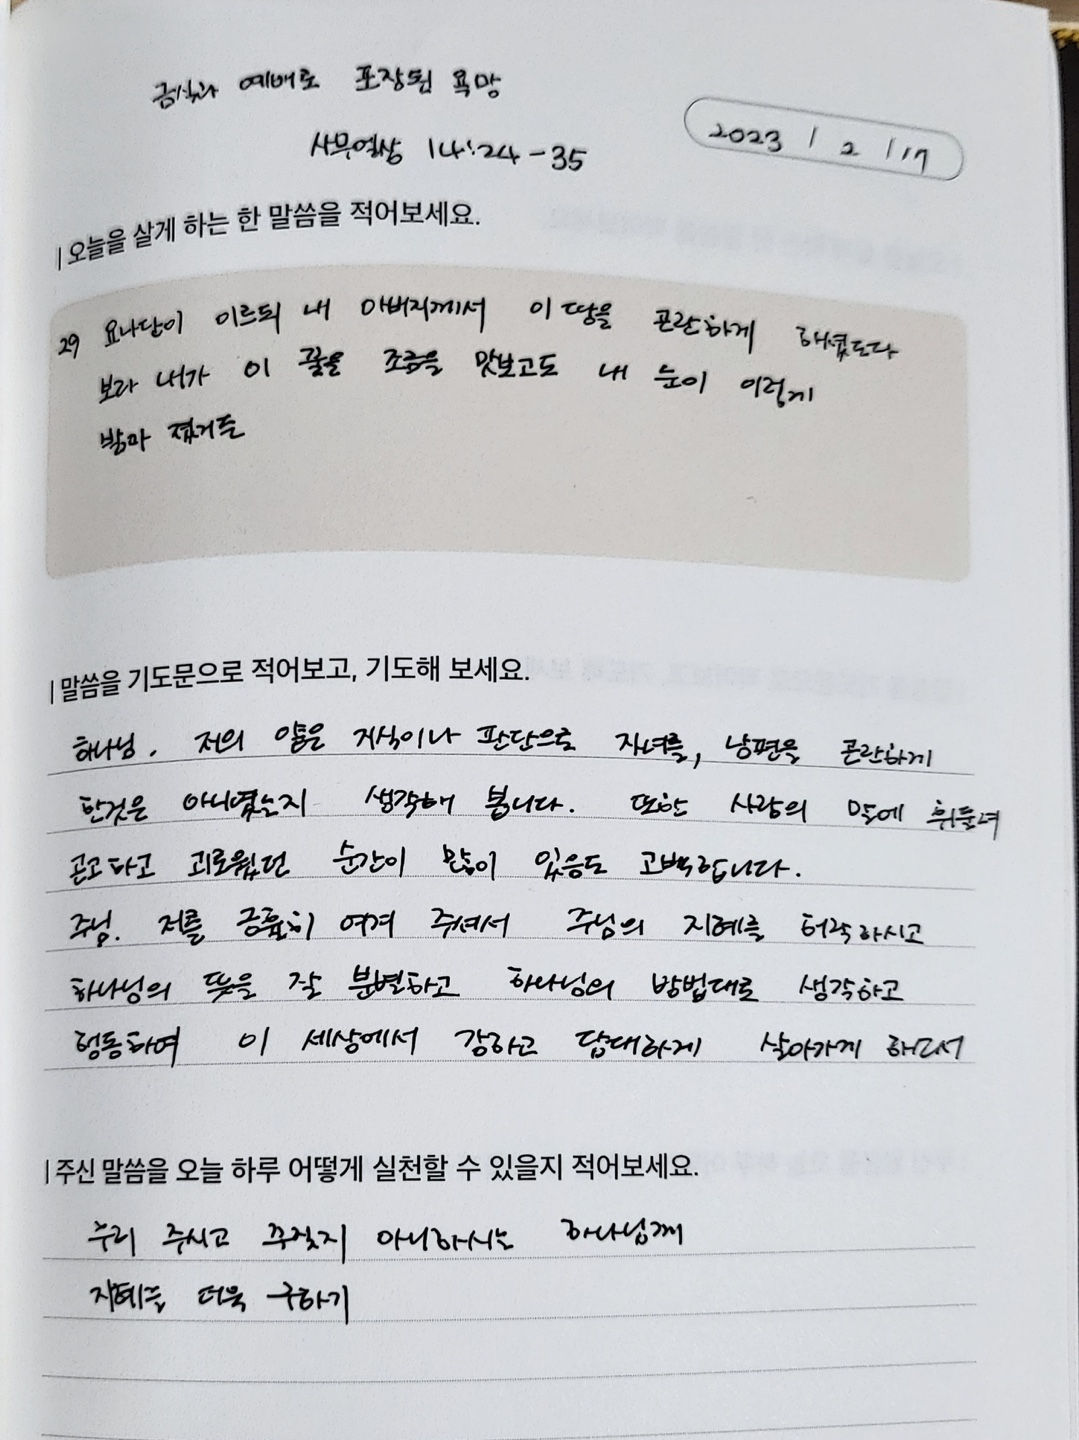 금식과 예배로 포장된 욕망
사무엘상 14:24-35
2023 / 2 / 17
오늘을 살게 하는 한 말씀을 적어보세요.
29 요나단이 이르되 내 아버지께서 이 땅을 곤란하게 하셨도다
보라 내가 이 꿀을 조금을 맛보고도 내 눈이 이렇게
밝아 졌거든
말씀을 기도문으로 적어보고, 기도해 보세요.
하나님. 저의 얇은 지식이나 판단으로 자녀를, 남편을 곤란하게
한것은 아니였는지 생각해 봅니다. 또한 사람의 말에 휘둘려
곤고하고 괴로웠던 순간이 많이 있음도 고백합니다.
주님. 저를 긍휼히 여겨 주셔서 주님의 지혜를 허락하시고
하나님의 뜻을 잘 분별하고 하나님의 방법대로 생각하고
행동하여 이 세상에서 강하고 담대하게 살아가게 하소서
주신 말씀을 오늘 하루 어떻게 실천할 수 있을지 적어보세요.
후히 주시고 꾸짖지 아니하시는 하나님께
지혜를 더욱 구하기